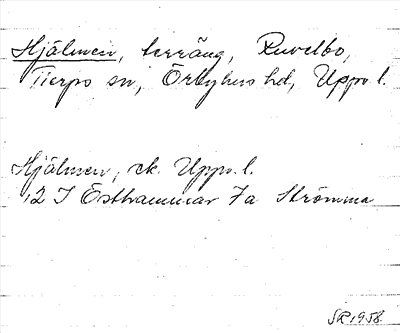 Hjälmen, terräng, Ruvelbo,
Tierps sn, Örbyhus hd, Upps. l.
Hjälmen, ek. Upps. l.
12 I Östhammar 7a Strömma
SR 1958